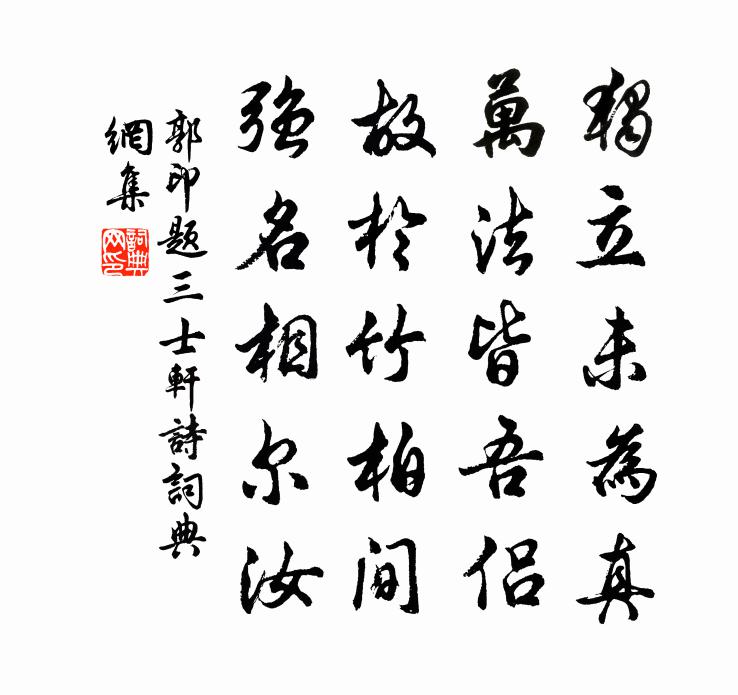 獨立未為真
萬法皆吾侶
故於竹柏間
強名相尔汝
郭印題三士軒詩詞典
網集
詞典
网印